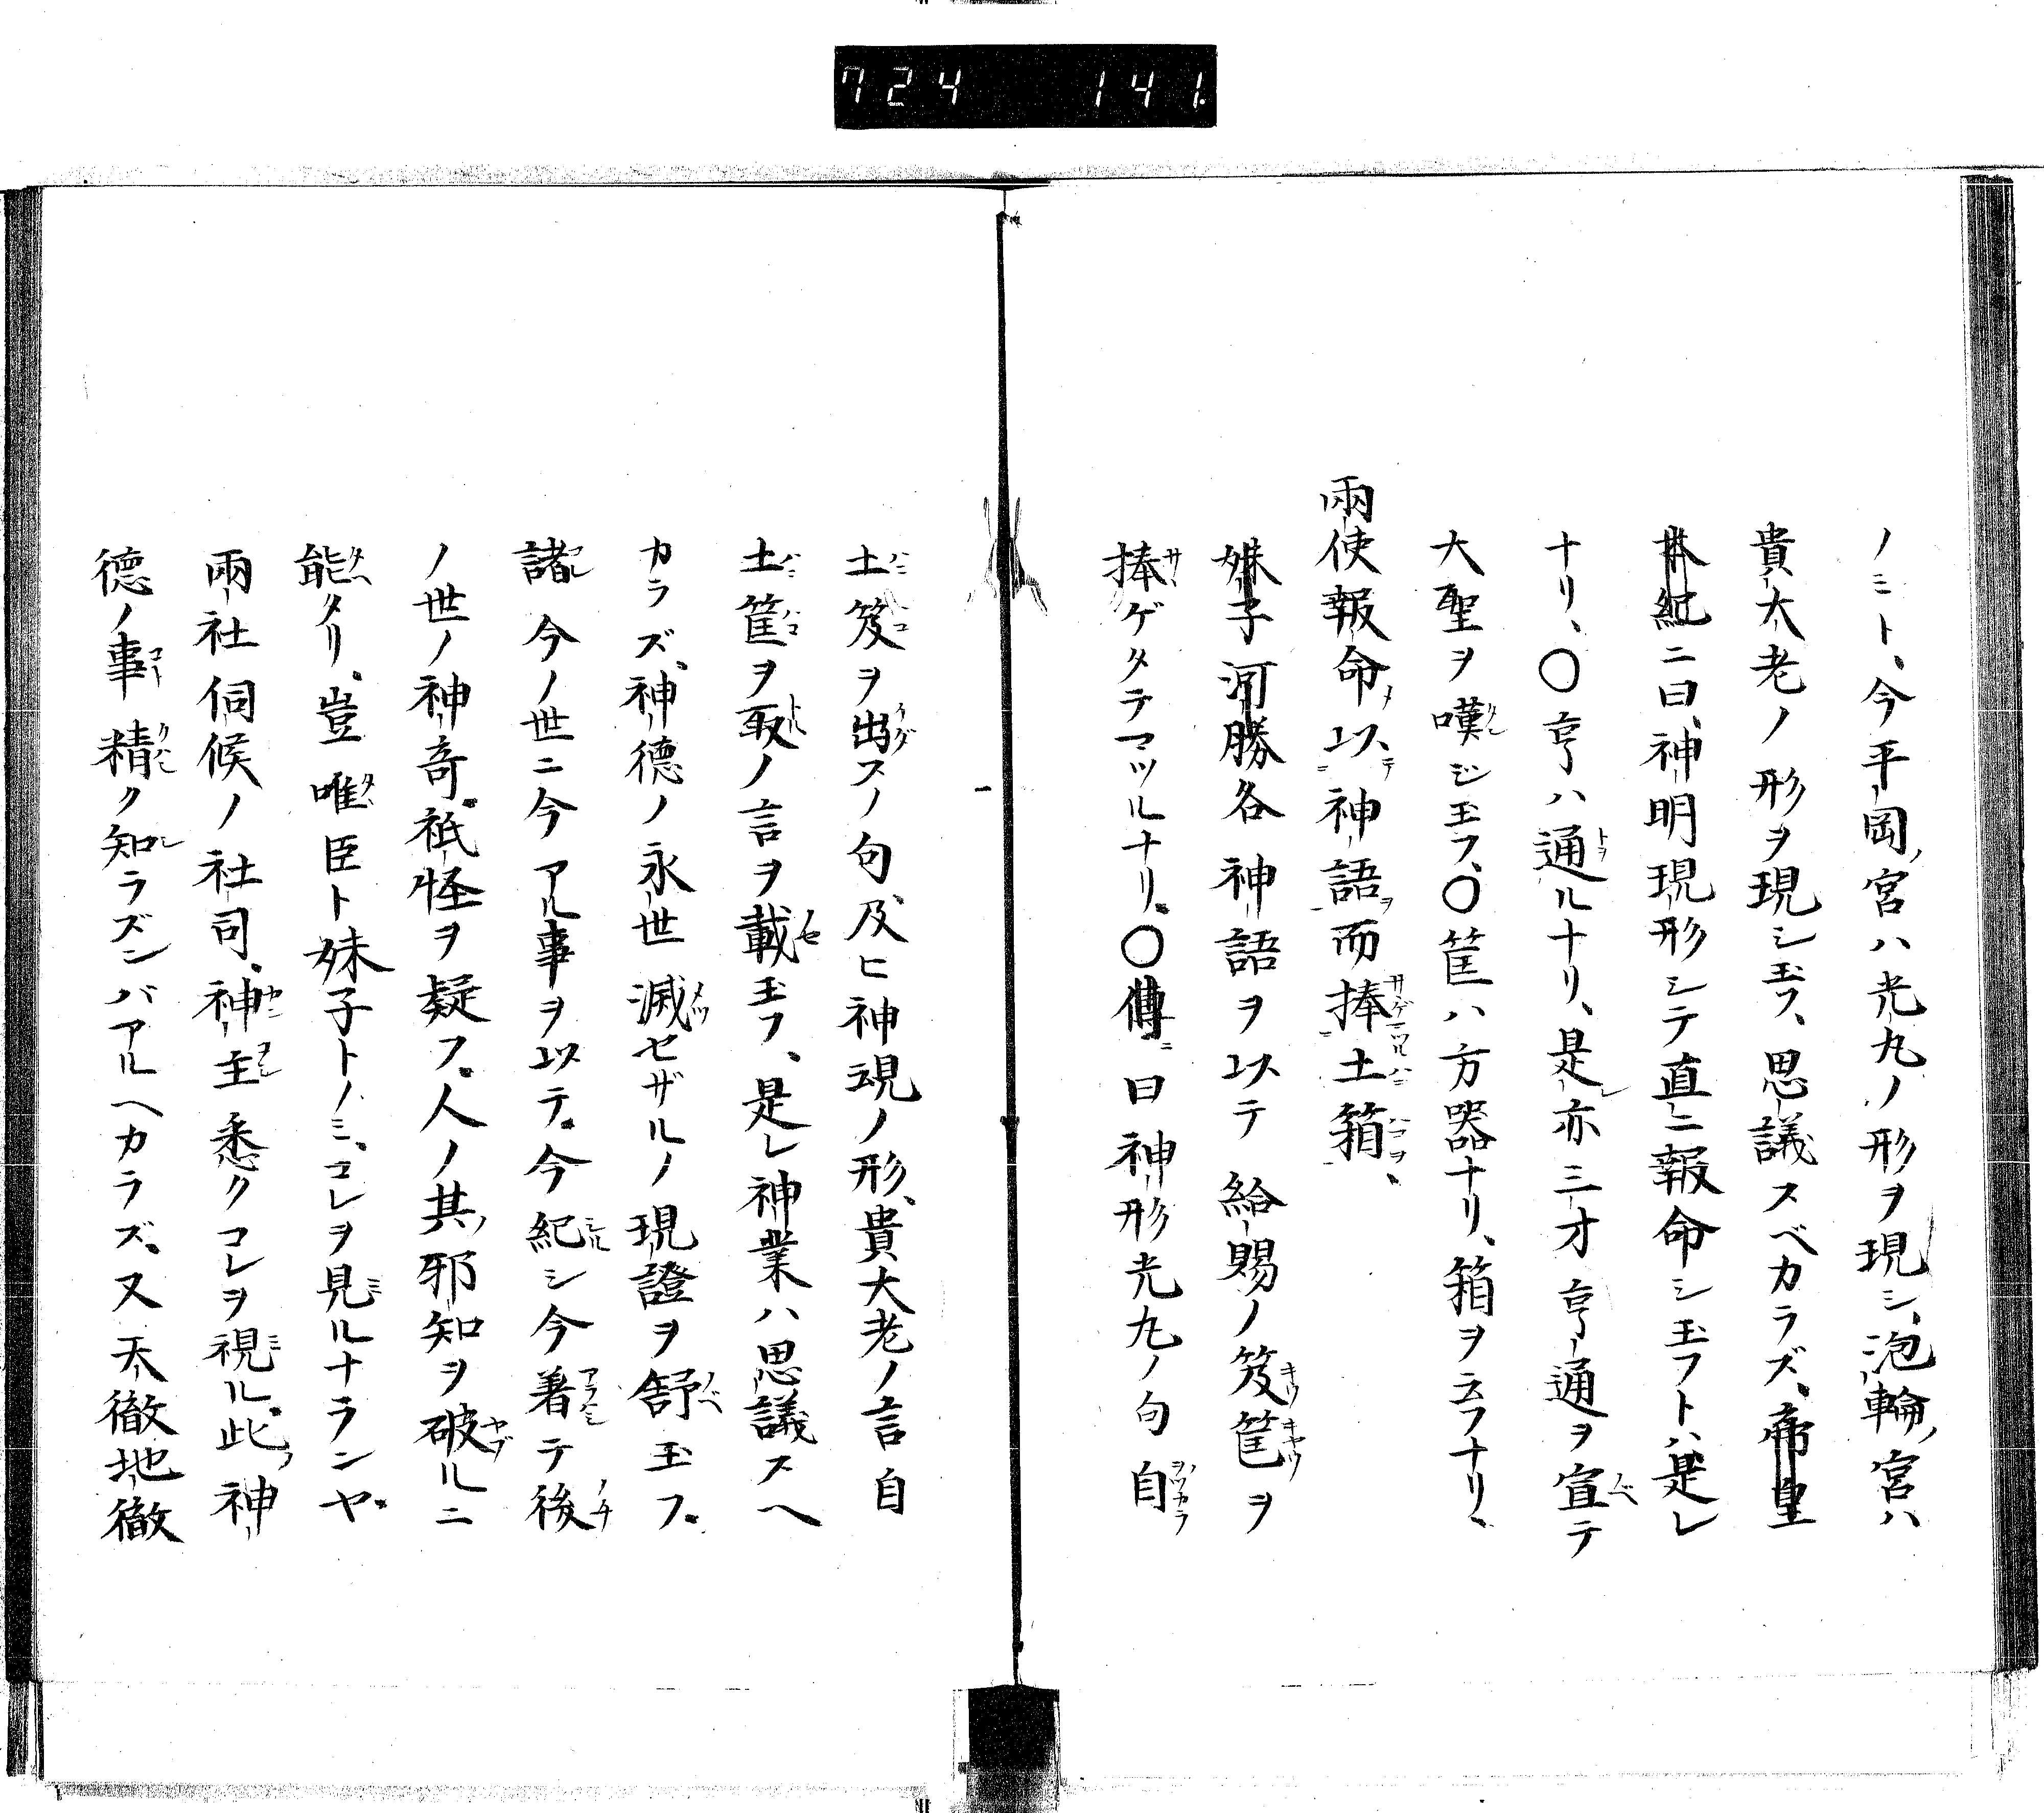 724 141.
ノミト、今平岡ノ宮ハ光丸ノ形ヲ現シ、泡輪ノ宮ハ
貴大老ノ形ヲ現シ玉フ、思議スベカラズ、帝皇
本紀ニ曰、神明現形シテ直ニ報命シ玉フトハ是レ
ナリ、〇亨ハ通ルナリ、是レ亦三才亨通ヲ宣テ
大聖ヲ嘆ジ玉フ、〇筐ハ方器ナリ、箱ヲ云フナリ、
兩使報命以神語而捧土箱、
妹子河勝各神語ヲ以テ給賜ノ笈筐ヲ
捧ゲタテマツルナリ。〇傳曰神形光丸ノ句自
土笈ヲ出スノ句、及ヒ神現ノ形、貴大老ノ言自
土筐ヲ取ノ言ヲ載玉フ、是レ神業ハ思議スヘ
カラズ、神德ノ永世滅セザルノ現證ヲ舒玉フ。
諸今ノ世ニ今アル事ヲ以テ。今紀シ今著テ後
ノ世ノ神奇。祇怪ヲ疑フ。人ノ其ノ邪知ヲ破ルニ
能タリ、豈唯臣ト妹子トノミ、コレヲ見ルナランヤ。
兩社伺候ノ社司、神主悉クコレヲ視ル。此ノ神
德ノ事精ク知ラズンバアルヘカラズ、又天徹地徹